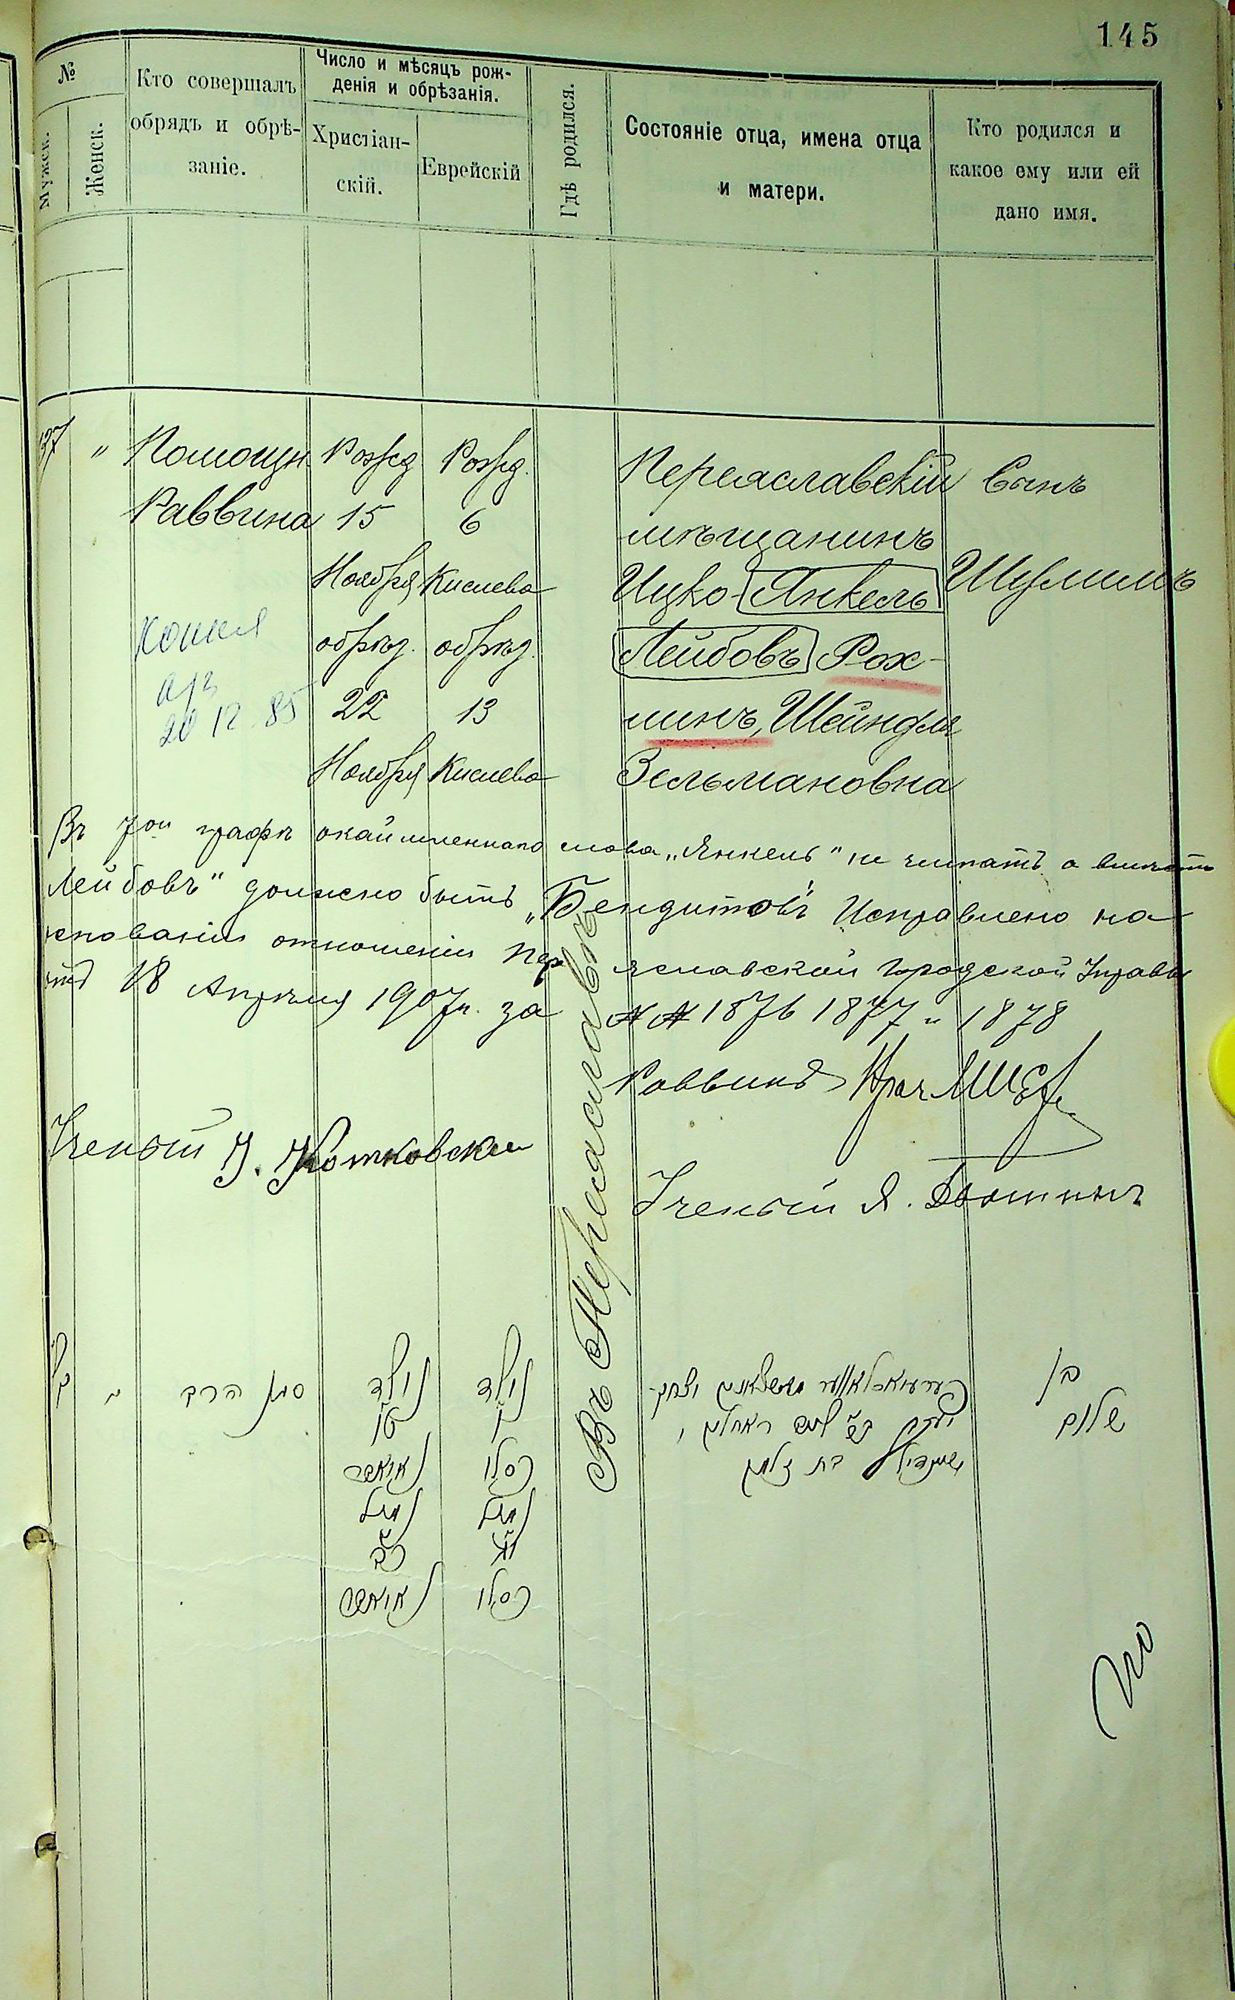 145
№
Мужск.
Женск.
Кто совершалъ
обрядъ и обрѣ-
заніе.
Число и мѣсяцъ рож-
денія и обрѣзанія.
Христіан-
скій.
Еврейскій
Гдѣ родился.
Состояніе отца, имена отца
и матери.
Кто родился и
какое ему или ей
дано имя.
„
Помощн
Раввина
Рожд
15
Ноября
обрѣз.
22
Ноября
Рожд.
6
Кислева
обрѣз.
13
Кислева
Въ Переяславѣ
Переяславскій
мѣщанинъ
Ицко-Янкель
Лейбовъ Рох-
линъ, Шейндля
Зельмановна
Сынъ
Шулимъ
Копия
20 12 85
Въ 7ой графѣ окаймленнаго слова „Янкель" не читать а вмѣсто
Лейбовъ" должно быть „Бендитовъ" Исправлено на
основаніи отношенія Переяславской Городской Управы
18 Апрѣля 1907г. за №№ 1876 1877 и 1878
Раввинъ
Ученый
Ученый Я.
הרב
נולד
ט״ו
נאיאבר
נימול
כ״ב
נאיאבר
נולד
ו׳
כסלו
נימול
י״ג
כסלו
יצחק
בת זלמן
בן
שלום